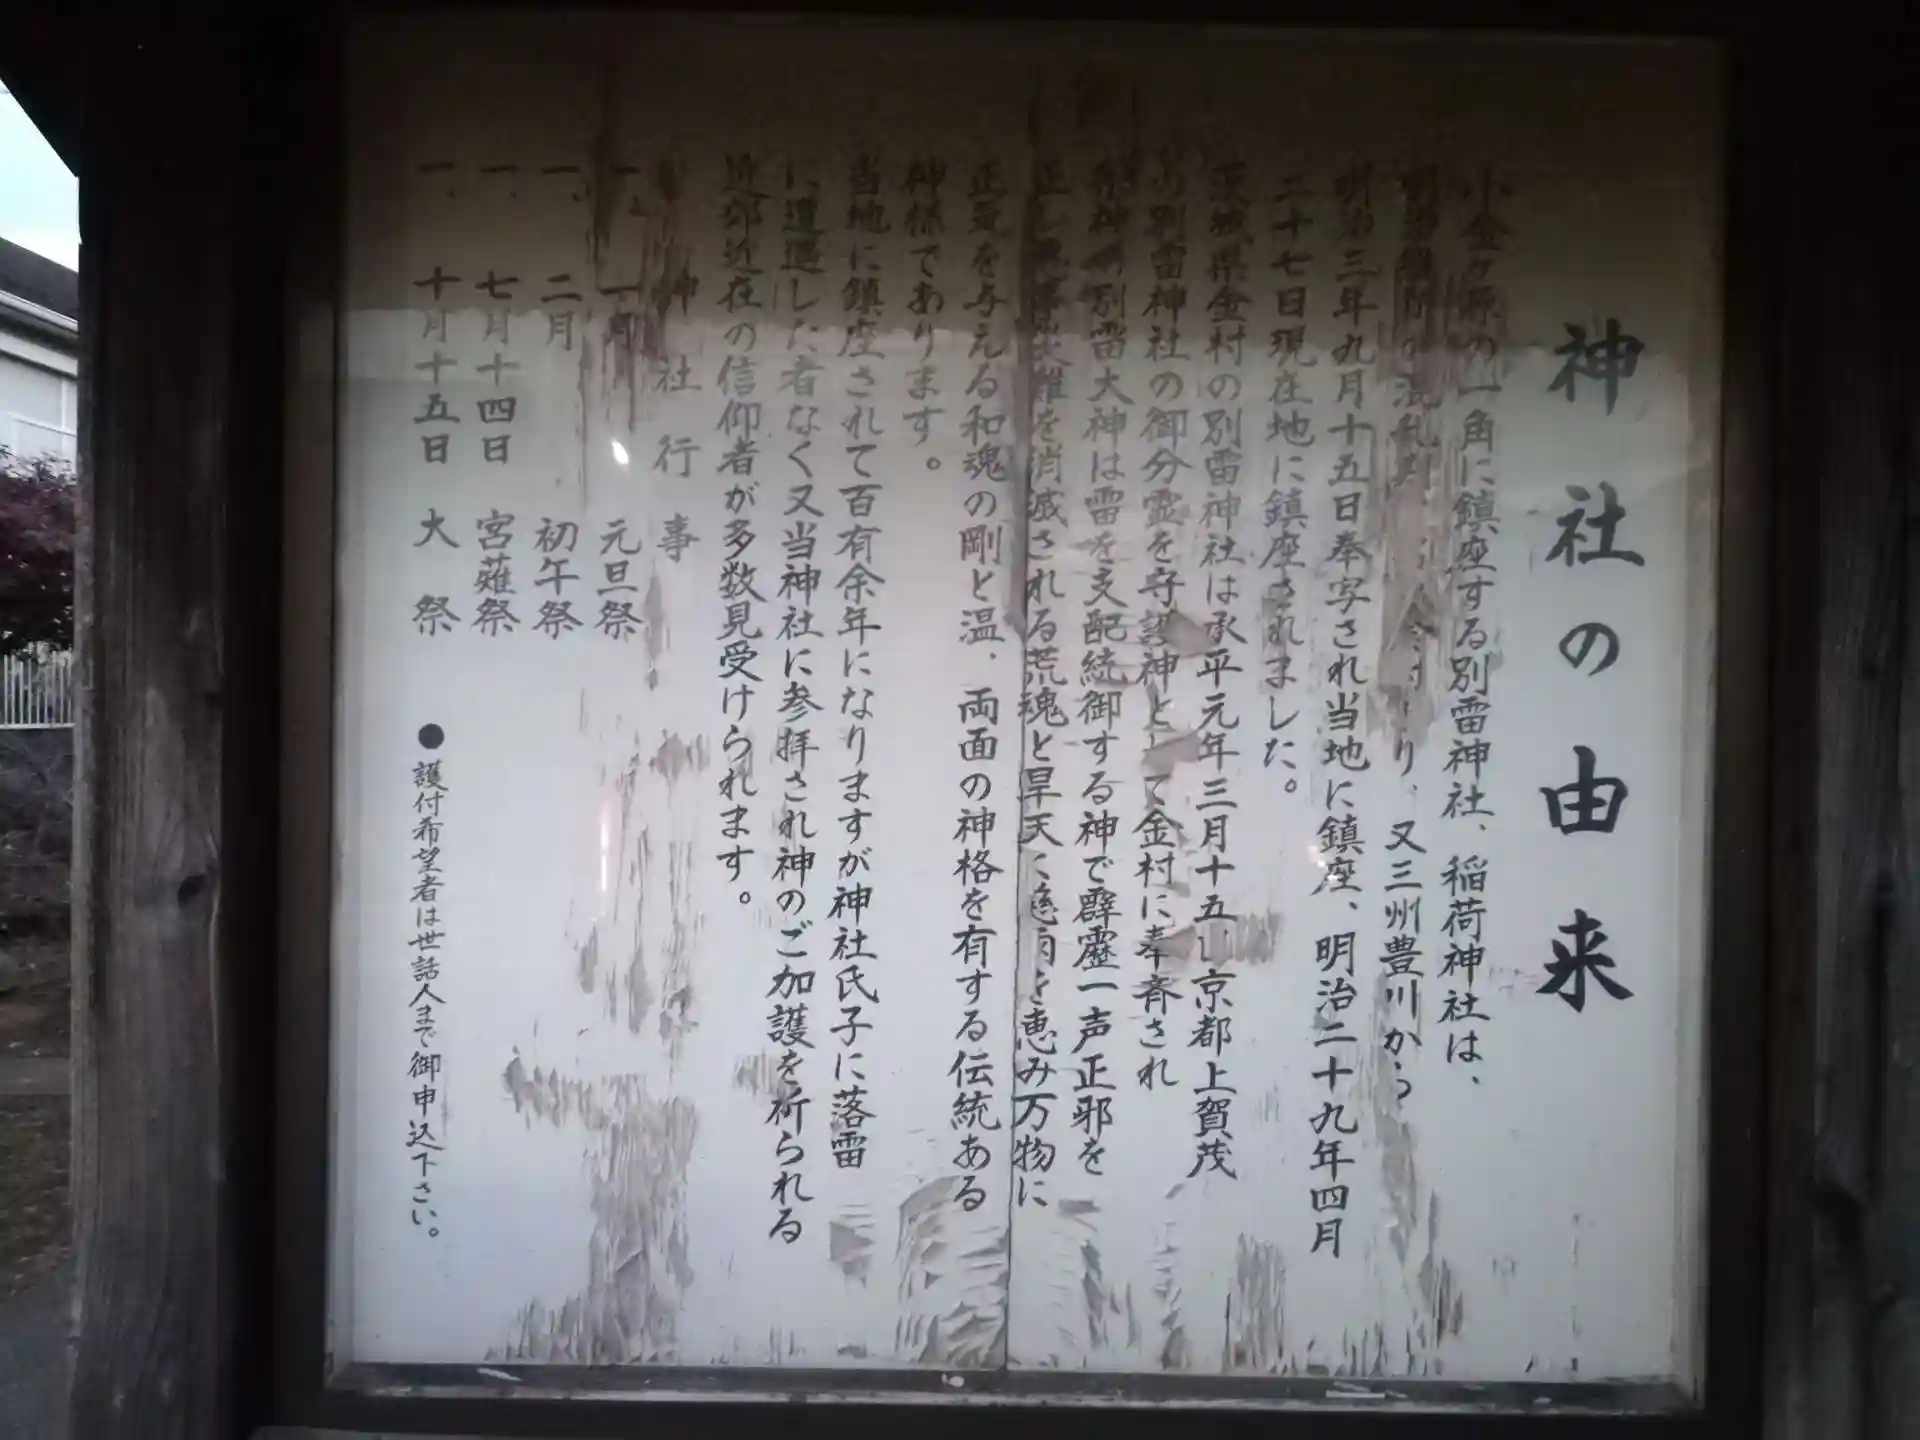 神社の由来
小金ヶ原の一角に鎮座する別雷神社、稲荷神社は、
の混乱期 り、又三州豊川から
明治三年九月十五日奉写され当地に鎮座、明治二十九年四月
二十七日現在地に鎮座されました。
茨城県金村の別雷神社は承平元年三月十五 京都上賀茂
の別雷神社の御分霊を守護神として金村に奉斉され
祭神の別雷大神は雷を支配統御する神で霹靂一声正邪を
正し 災難を消滅される荒魂と旱天に慈雨を恵み万物に
正気を与える和魂の剛と温、両面の神格を有する伝統ある
神様であります。
当地に鎮座されて百有余年になりますが神社氏子に落雷
に遭遇した者なく又当神社に参拝され神のご加護を祈られる
近郊近在の信仰者が多数見受けられます。
神社行事
一、一月 元旦祭
一、二月 初午祭
一、七月十四日 宮薙祭
一、十月十五日 大祭
●護付希望者は世話人まで御申込下さい。